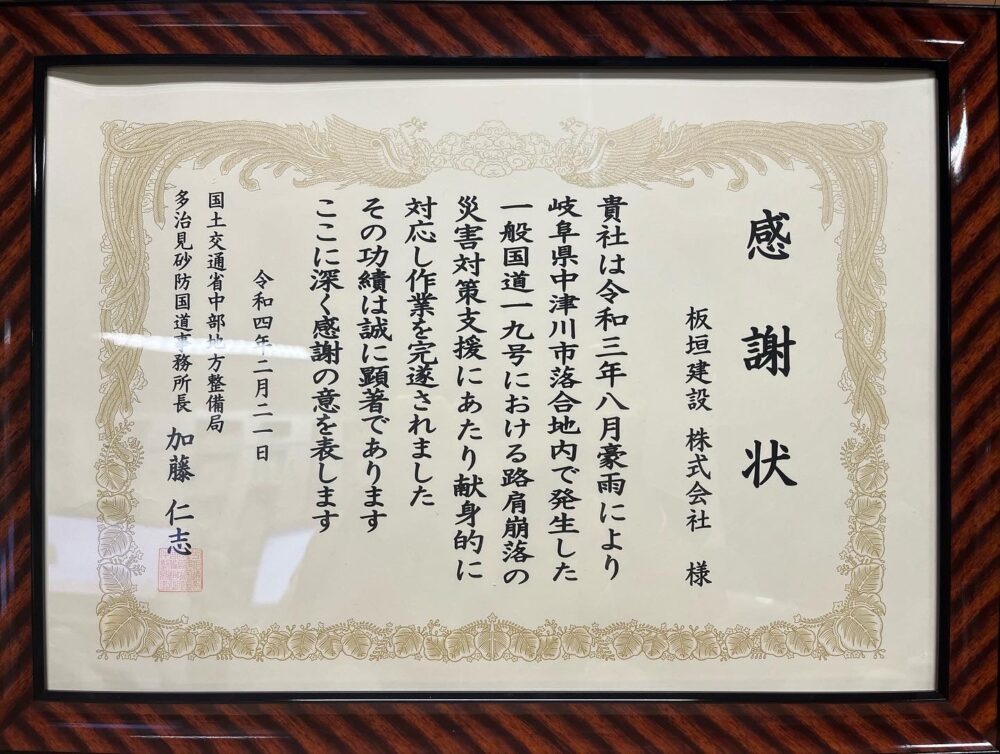 感謝状
板垣建設 株式会社 様
貴社は令和三年八月豪雨により
岐阜県中津川市落合地内で発生した
一般国道一九号における路肩崩落の
災害対策支援にあたり献身的に
対応し作業を完遂されました
その功績は誠に顕著であります
ここに深く感謝の意を表します
令和四年二月二一日
国土交通省中部地方整備局
多治見砂防国道事務所長 加藤 仁志